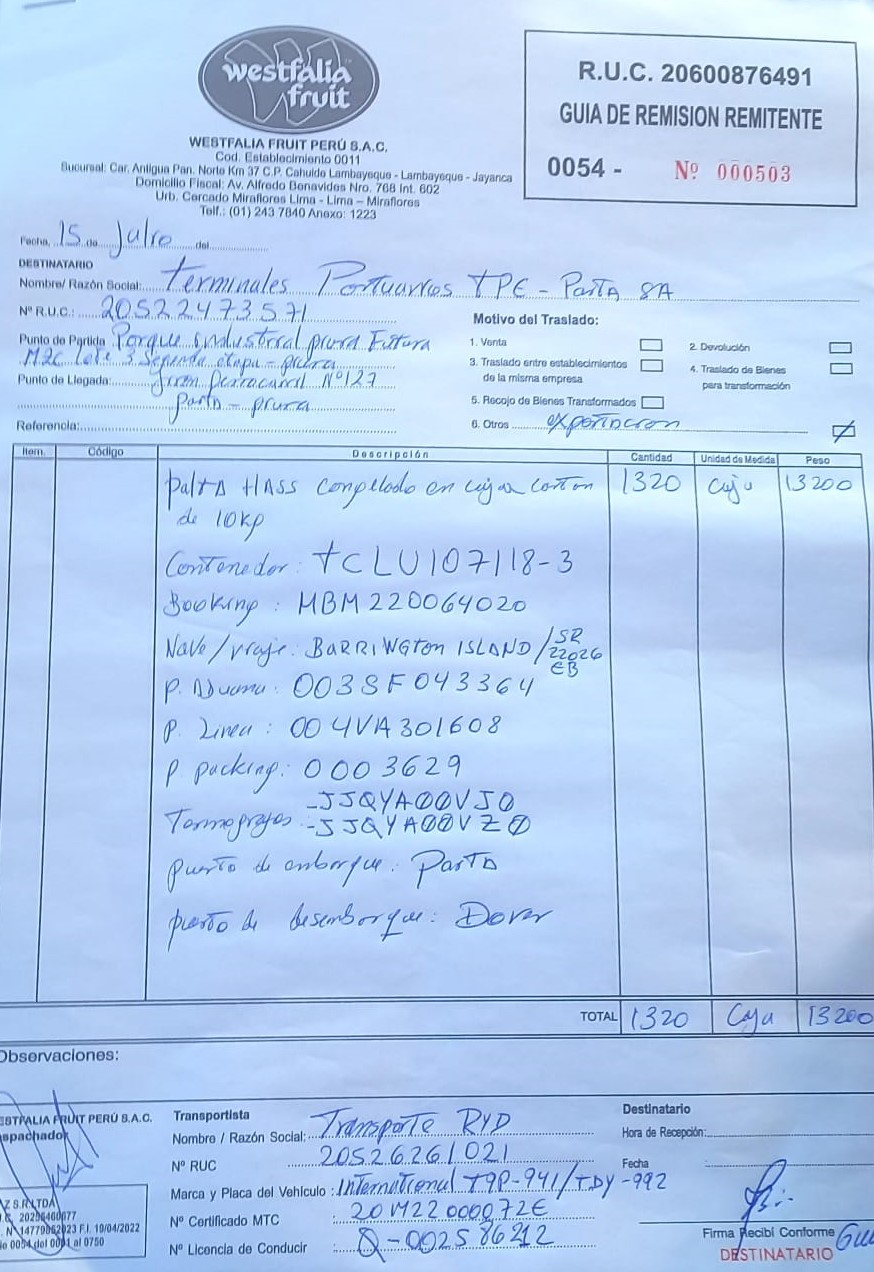 westfalia
fruit
WESTFALIA FRUIT PERÚ S.A.C.
Cod. Establecimiento 0011
Sucursal: Car. Antigua Pan. Norte Km 37 C.P. Cahuide Lambayeque - Lambayeque - Jayanca
Domicilio Fiscal: Av. Alfredo Benavides Nro. 768 Int. 602
Urb. Cercado Miraflores Lima - Lima – Miraflores
Telf.: (01) 243 7840 Anexo: 1223
R.U.C. 20600876491
GUIA DE REMISION REMITENTE
0054 - Nº 000503
Fecha, 15 de Julio del
DESTINATARIO
Nombre/ Razón Social: Terminales Portuarios TPE - Paita SA
Nº R.U.C.: 20522473571
Punto de Partida Parque industrial piura Futura
M2C lote 3 Segunda etapa - piura
Punto de Llegada: Jiron Ferrocarril Nº127
Paita - piura
Referencia:
Motivo del Traslado:
1. Venta
2. Devolución
3. Traslado entre establecimientos
de la misma empresa
4. Traslado de Bienes
para transformación
5. Recojo de Bienes Transformados
6. Otros exportacion
Item. Código Descripción Cantidad Unidad de Medida Peso
palta HASS congelado en cajas carton 1320 Caja 13200
de 10kg
Contenedor: TCLU107118-3
Booking: MBM220064020
Nave/viaje: BARRINGTON ISLAND/SR
22026
EB
P. Aduana: 003SF043364
P. Linea: 004VA301608
P packing: 0003629
-JJQYA00VJ0
Termografos -JJQYA00VZ0
puerto de embarque: Paita
puerto de desembarque: Dover
TOTAL 1320 Caja 13200
Observaciones:
ESTFALIA FRUIT PERÚ S.A.C.
spachador
Transportista
Nombre / Razón Social: Transporte RYD
Nº RUC 20526261021
Marca y Placa del Vehículo: International T9P-941/TDY-992
Nº Certificado MTC 20M22000072E
Nº Licencia de Conducir Q-002586212
Destinatario
Hora de Recepción:
Fecha
Firma Recibí Conforme
DESTINATARIO
Z S.R.LTDA
F.I. 19/04/2022
0054 del 0001 al 0750